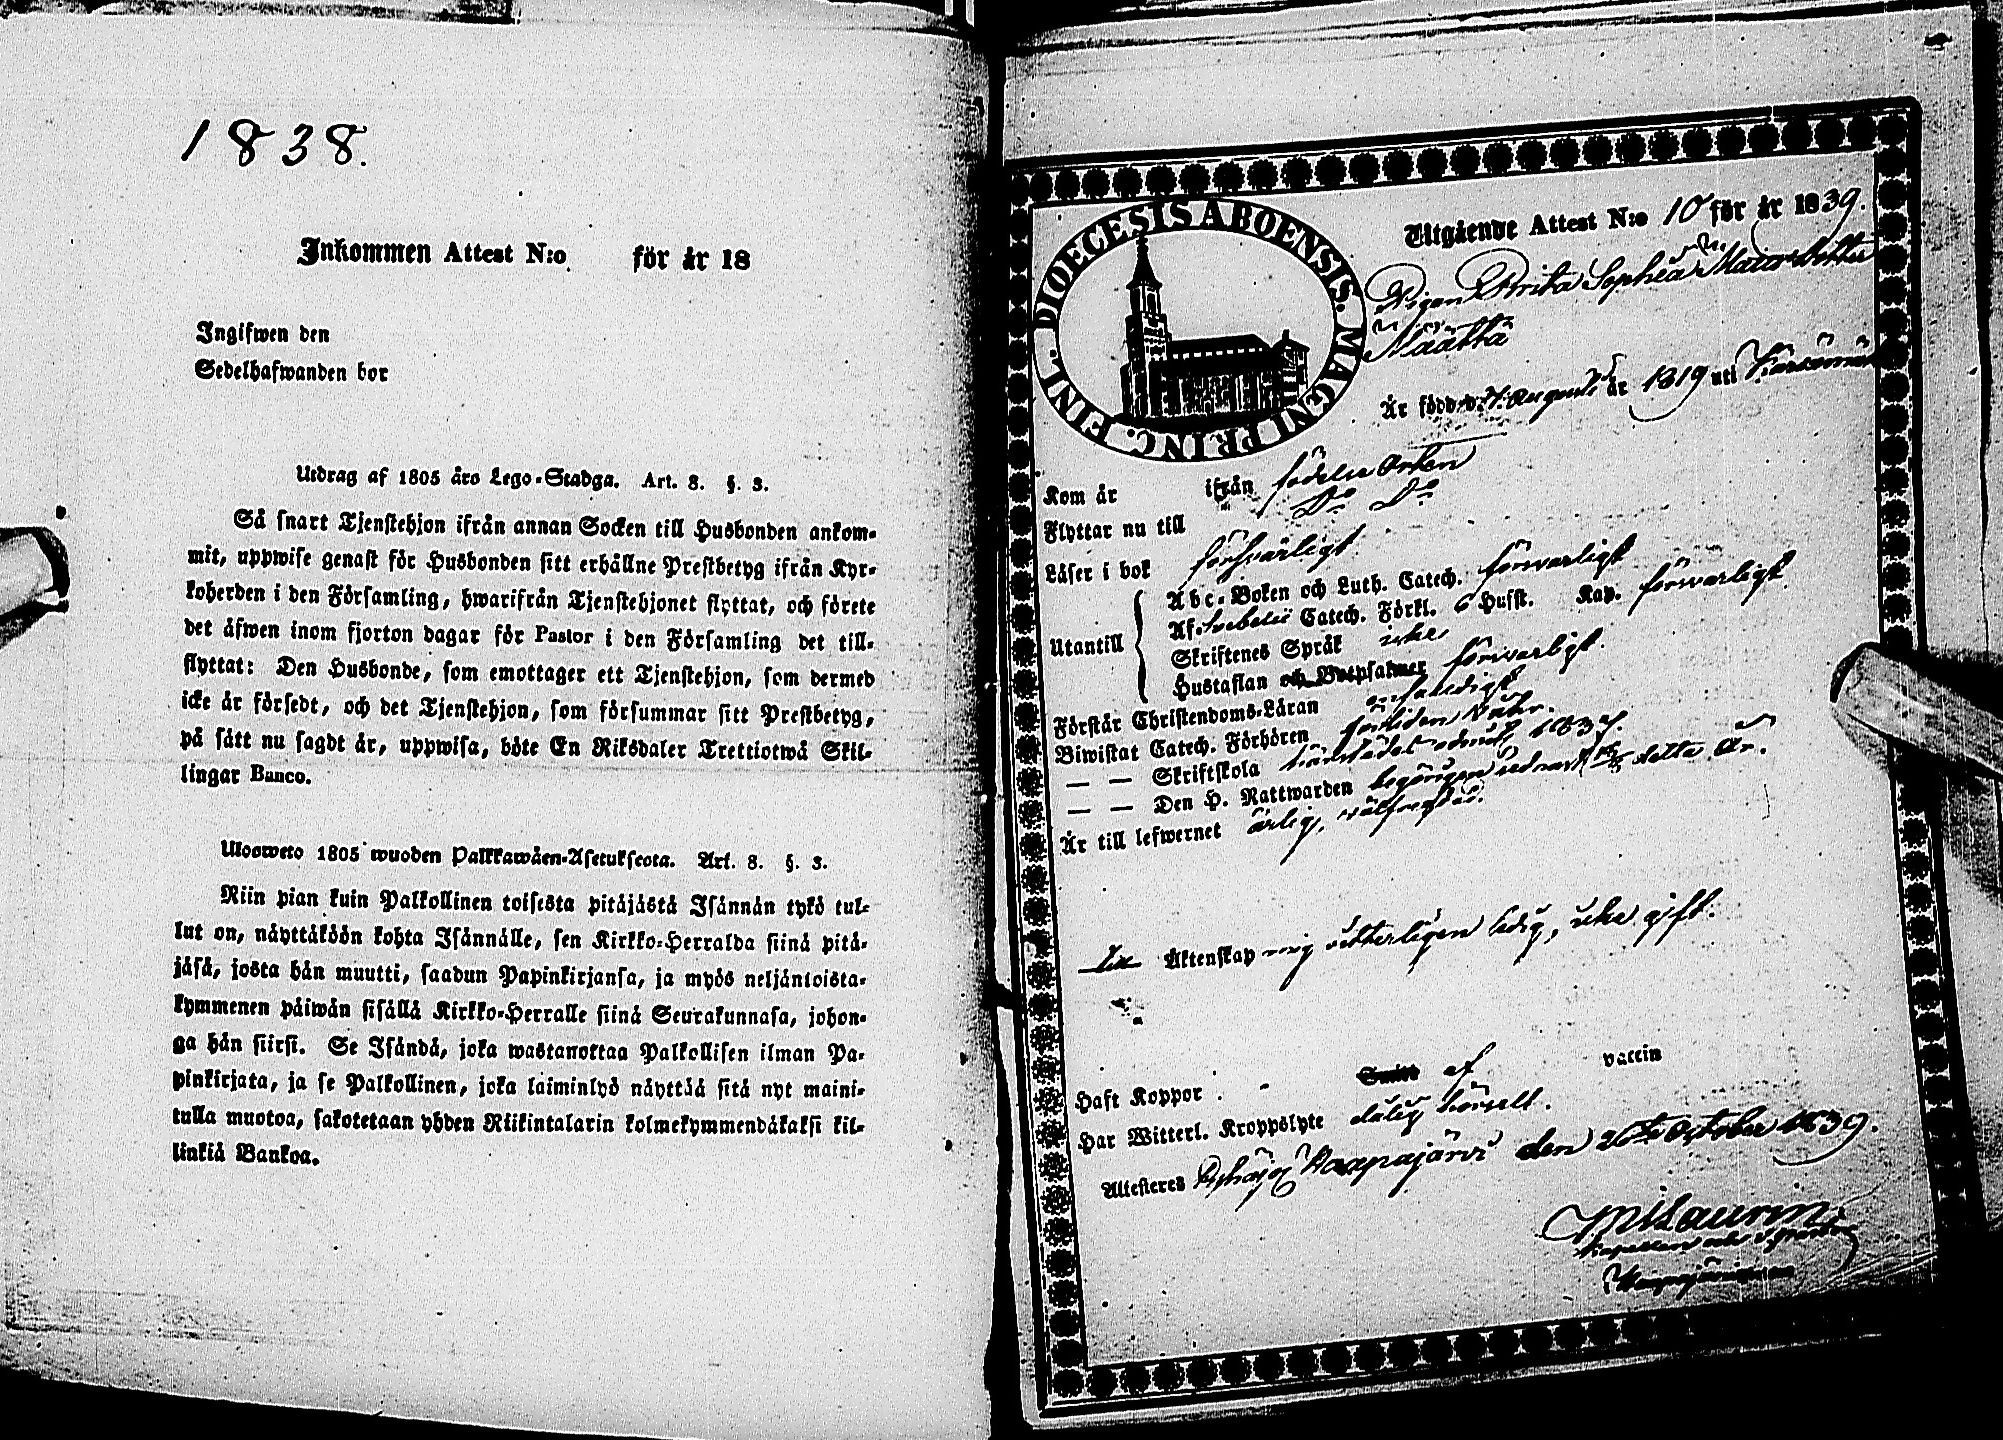 1838.
Inkommen Attest N:o för år 18
Ingifwen den
Sedelhafwanden bor
Utdrag af 1805 års Lego-Stadga. Art. 8. §. 3.
Så snart Tjenstehjon ifrån annan Socken till Husbonden ankom-
mit, uppwise genast för Husbonden sitt erhållne Prestbetyg ifrån Kyr-
koherden i den Församling, hwarifrån Tjenstehjonet flyttat, och förete
det äfwen inom fjorton dagar för Pastor i den Församling det till-
flyttat: Den Husbonde, som emottager ett Tjenstehjon, som dermed
icke är försedt, och det Tjenstehjon, som försummar sitt Prestbetyg,
på sätt nu sagdt är, uppwisa, böte En Riksdaler Trettiotwå Skil-
lingar Banco.
Uloswето 1805 wuoden Palkkawäen-Asetuksesta. Art. 8. §. 3.
Niin pian kuin Palkollinen toisesta pitäjästä Isännän tykö tul-
lut on, näyttäköön kohta Isännälle, sen Kirkko-Herralda siinä pitä-
jäsä, josta hän muutti, saadun Papinkirjansa, ja myös neljäntoista-
kymmenen päiwän sisällä Kirkko-Herralle siinä Seurakunnasa, johon-
ga hän siirsi. Se Isändä, joka wastanottaa Palkollisen ilman Pa-
pinkirjata, ja se Palkollinen, joka laiminlyö näyttää sitä nyt maini-
tulla muotoa, sakotetaan yhden Riikintalarin kolmekymmendäkaksi kil-
linkiä Bankoa.
DIOECESIS ABOENSIS. MAGNI PRINC. FINL.
Utgående Attest N:o 10 för år 1839.
Pigan Brita Sophia Maiasdotter
Määttä
Är född d. 7. Augusti år 1819 uti Kärsämäki
Kom år ifrån födelse Orten
Flyttar nu till Do Do
Läser i bok försvarligt
Utantill
Abc-Boken och Luth. Catech. försvarligt
Af Svebelii Catech. Förkl. 6 Hufst. Kap. försvarligt
Skriftenes Språk icke
Hustaflan och Botpsalmer försvarligt.
Förstår Christendoms-Läran
Biwistat Catech. Förhören
— — Skriftskola 1837.
— — Den H. Nattwarden begärligen sednast detta År.
Är till lefwernet ärlig, wälfregdad.
till Äktenskap mig vetterligen ledig, icke gift.
Haft Koppor. Smitt af vaccin
Har Witterl. Kroppslyte dålig hörsell.
Attesteres Pyhäjoki Haapajärvi den 26te October 1839.